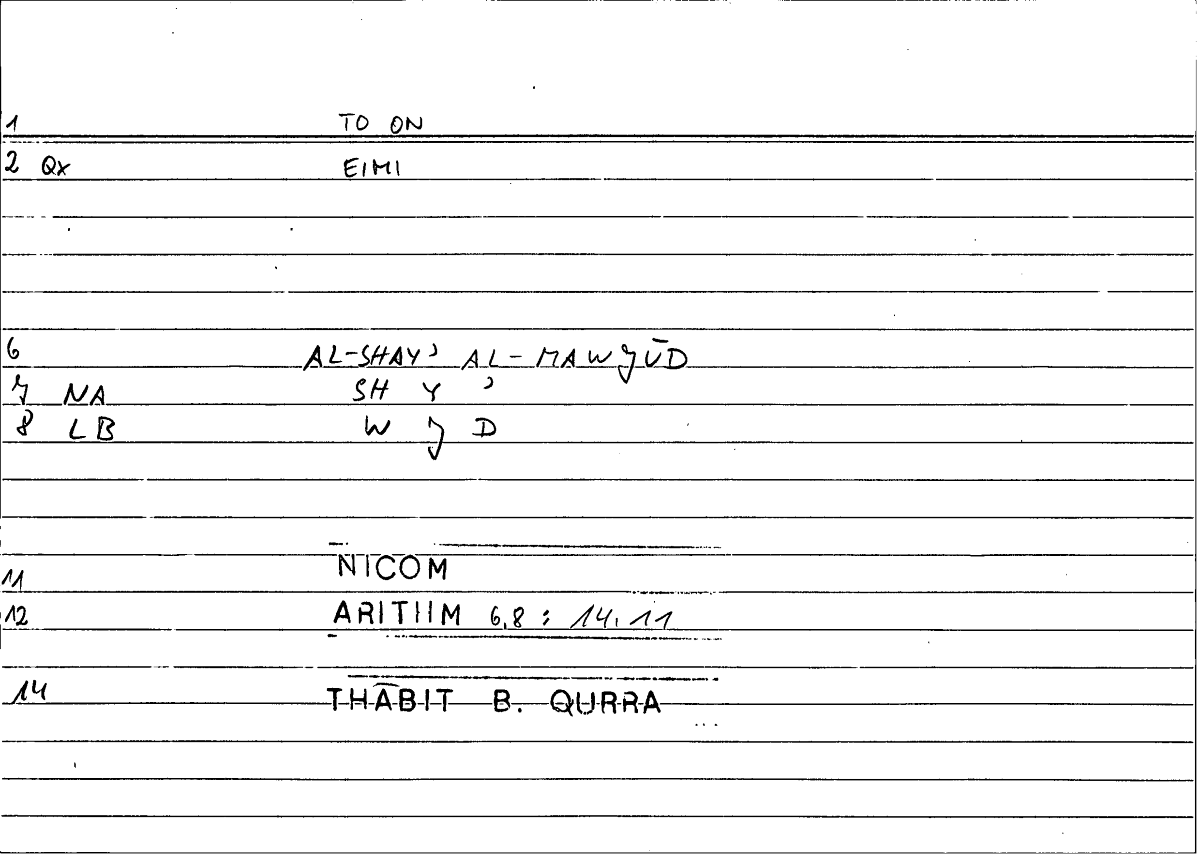 1 TO ON
2 Qx EIMI
6 AL-SHAY' AL-MAWJŪD
7 NA SH Y '
8 LB W J D
11 NICOM
12 ARITIIM 6,8 : 14,11
14 THĀBIT B. QURRA